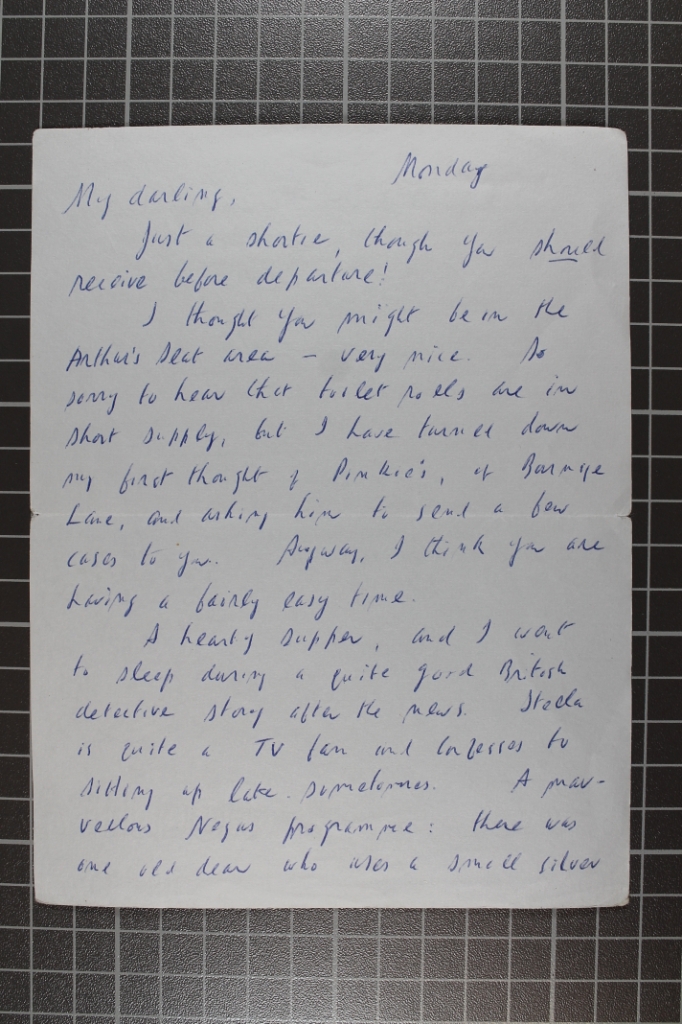 Monday
My darling,
Just a shortie, though you should
receive before departure!
I thought you might be in the
Arthur's Seat area – very nice. So
sorry to hear that toilet rolls are in
short supply, but I have turned down
my first thought of Pinkie's, of
Lane, and asking him to send a few
cases to you. Anyway, I think you are
having a fairly easy time.
A hearty supper, and I went
to sleep during a quite good British
detective story after the news. Stella
is quite a TV fan and confesses to
sitting up late sometimes. A mar-
vellous Negus programme: there was
one old dear who uses a small silver